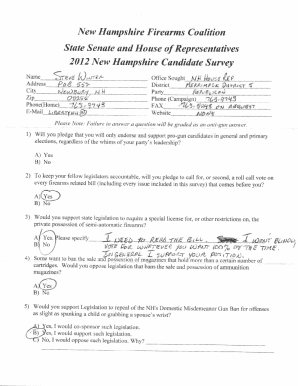 New Hampshire Firearms Coalition
State Senate and House of Representatives
2012 New Hampshire Candidate Survey
Name Steve Winter Office Sought NH House Rep
Address POB 557 District Merrimack District 5
City Newbury, NH Party Republican
Zip 03255 Phone (Campaign) 763-9743
Phone(Home) 763-9743 FAX 763-9098 on request
E-Mail Website None
Please Note: Failure to answer a question will be graded as an anti-gun answer.
1) Will you pledge that you will only endorse and support pro-gun candidates in general and primary
elections, regardless of the whims of your party's leadership?
A) Yes
B) No
2) To keep your fellow legislators accountable, will you pledge to call for, or second, a roll call vote on
every firearms related bill (including every issue included in this survey) that comes before you?
A) Yes
B) No
3) Would you support state legislation to require a special license for, or other restrictions on, the
private possession of semi-automatic firearms?
A) Yes Please specify I need to read the bill. I won't blindly
B) No vote for whatever you want 100% of the time.
In general I support your position.
4) Some want to ban the sale and possession of magazines that hold more than a certain number of
cartridges. Would you oppose legislation that bans the sale and possession of ammunition
magazines?
A) Yes
B) No
5) Would you support Legislation to repeal of the NH's Domestic Misdemeanor Gun Ban for offenses
as slight as spanking a child or grabbing a spouse's wrist?
A) Yes, I would co-sponsor such legislation.
B) Yes, I would support such legislation.
C) No, I would oppose such legislation. Why?